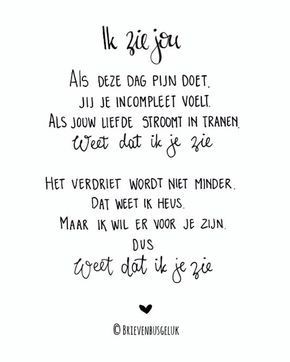 Ik zie jou
Als deze dag pijn doet.
Jij je incompleet voelt.
Als jouw liefde stroomt in tranen.
Weet dat ik je zie
Het verdriet wordt niet minder.
Dat weet ik heus.
Maar ik wil er voor je zijn.
Dus
Weet dat ik je zie
© Brievenbusgeluk